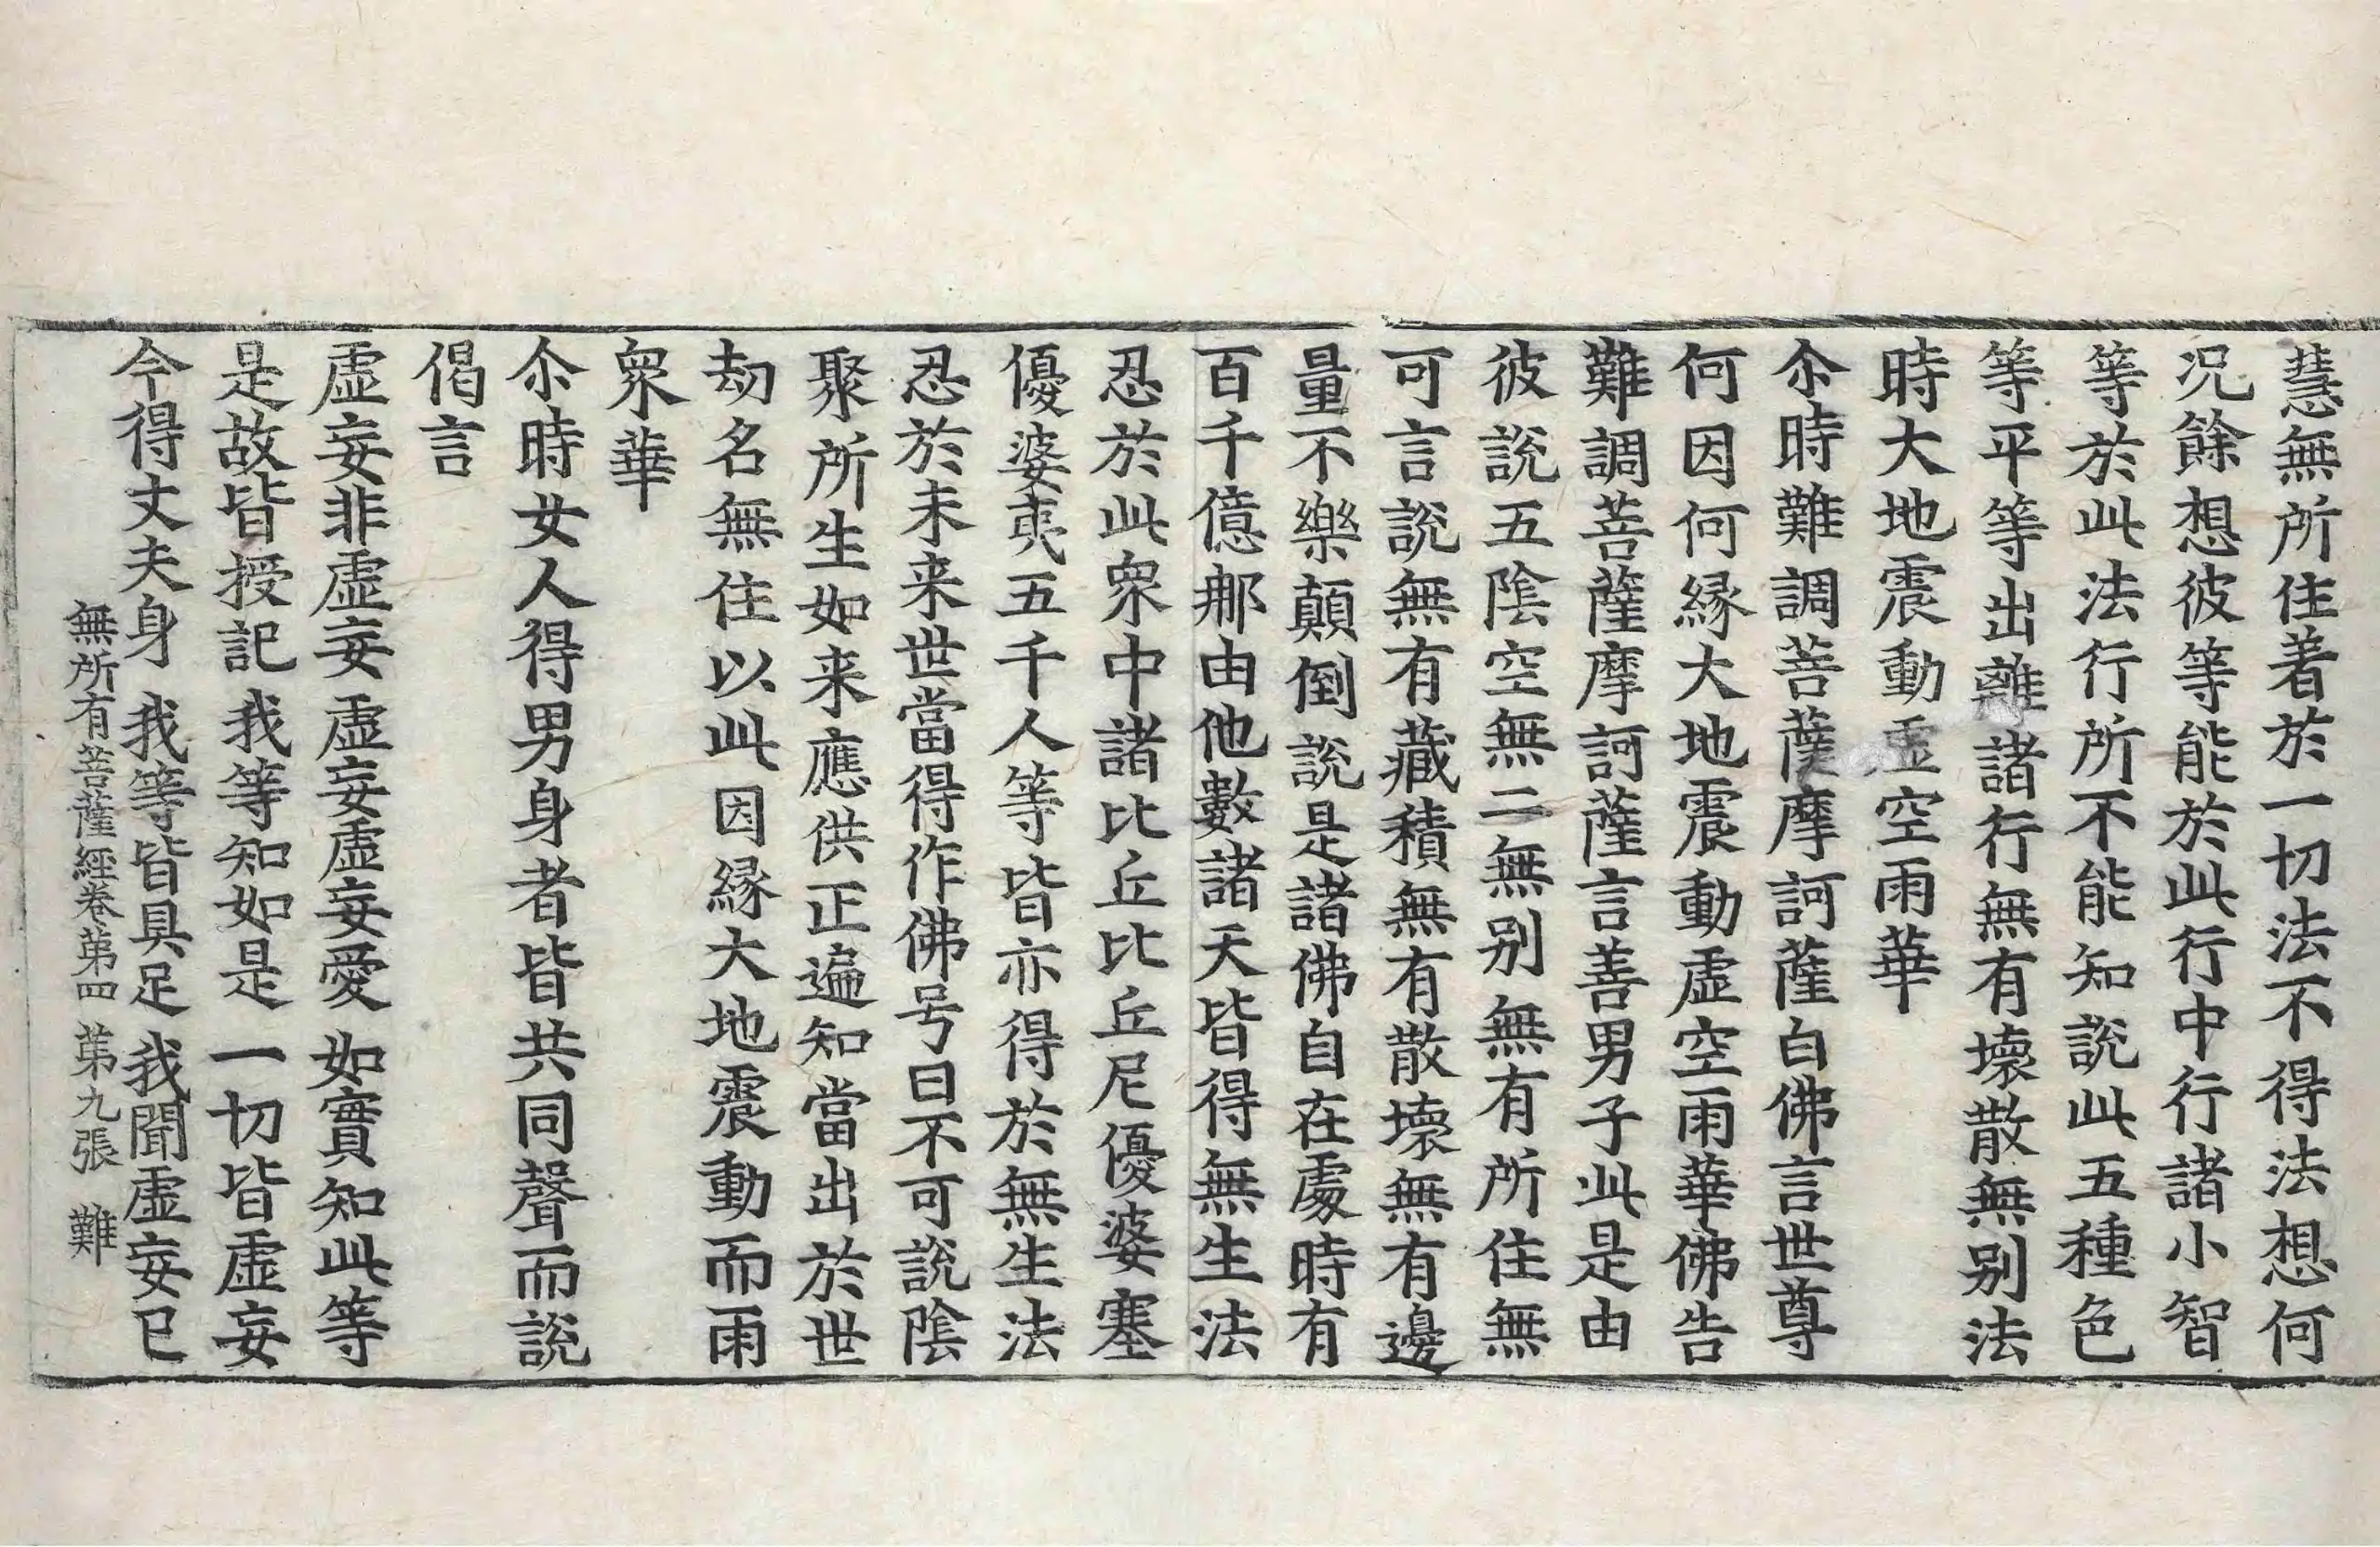 慧無所住著於一切法不得法想何
况餘想彼等能於此行中行諸小智
等於此法行所不能知說此五種色
等平等出離諸行無有壞散無别法
時大地震動虛空雨華
尒時難調菩薩摩訶薩白佛言世尊
何因何縁大地震動虛空雨華佛告
難調菩薩摩訶薩言善男子此是由
彼說五隂空無二無别無有所住無
可言說無有藏積無有散壞無有邊
量不樂顛倒說是諸佛自在處時有
百千億那由他數諸天皆得無生法
忍於此衆中諸比丘比丘尼優婆塞
優婆夷五千人等皆亦得於無生法
忍於未来世當得作佛号曰不可說隂
聚所生如来應供正遍知當出於世
劫名無住以此因縁大地震動而雨
衆華
尒時女人得男身者皆共同聲而說
偈言
虛妄非虛妄　虛妄虛妄愛　如實知此等
是故皆授記　我等知如是　一切皆虛妄
今得丈夫身　我等皆具足　我聞虛妄已
無所有菩薩經卷第四　第九張　難